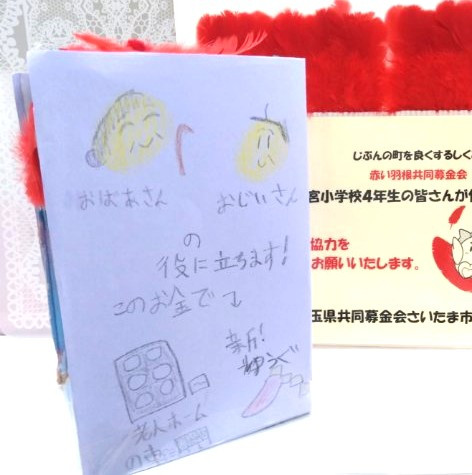 おばあさん
おじいさん
の
役に立ちます!
このお金で
新!
老人ホーム
の車
じぶんの町を良くするしく
赤い羽根共同募金会
宮小学校4年生の皆さんが
協力を
お願いいたします。
玉県共同募金会さいたま市